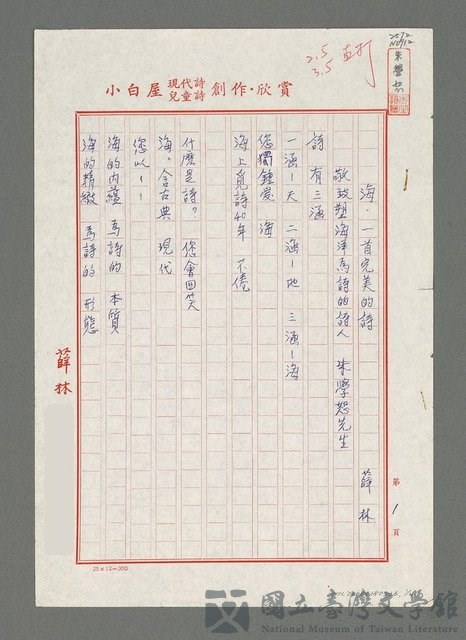 2.5
3.5 直打
朱學恕
小白屋 現代詩 兒童詩 創作·欣賞
海·一首完美的詩
敬致塑海洋為詩的詩人 朱學恕先生
薛林
詩有三涵
一涵—天 二涵—地 三涵—海
您獨鍾愛 海
海上覓詩40年 不倦
什麼是詩。 您會回笑
海。含古典 現代
您以——
海的內蘊 為詩的 本質
海的精緻 為詩的 形態
薛林
第 1 頁
25×12=300
國立臺灣文學館
National Museum of Taiwan Literature